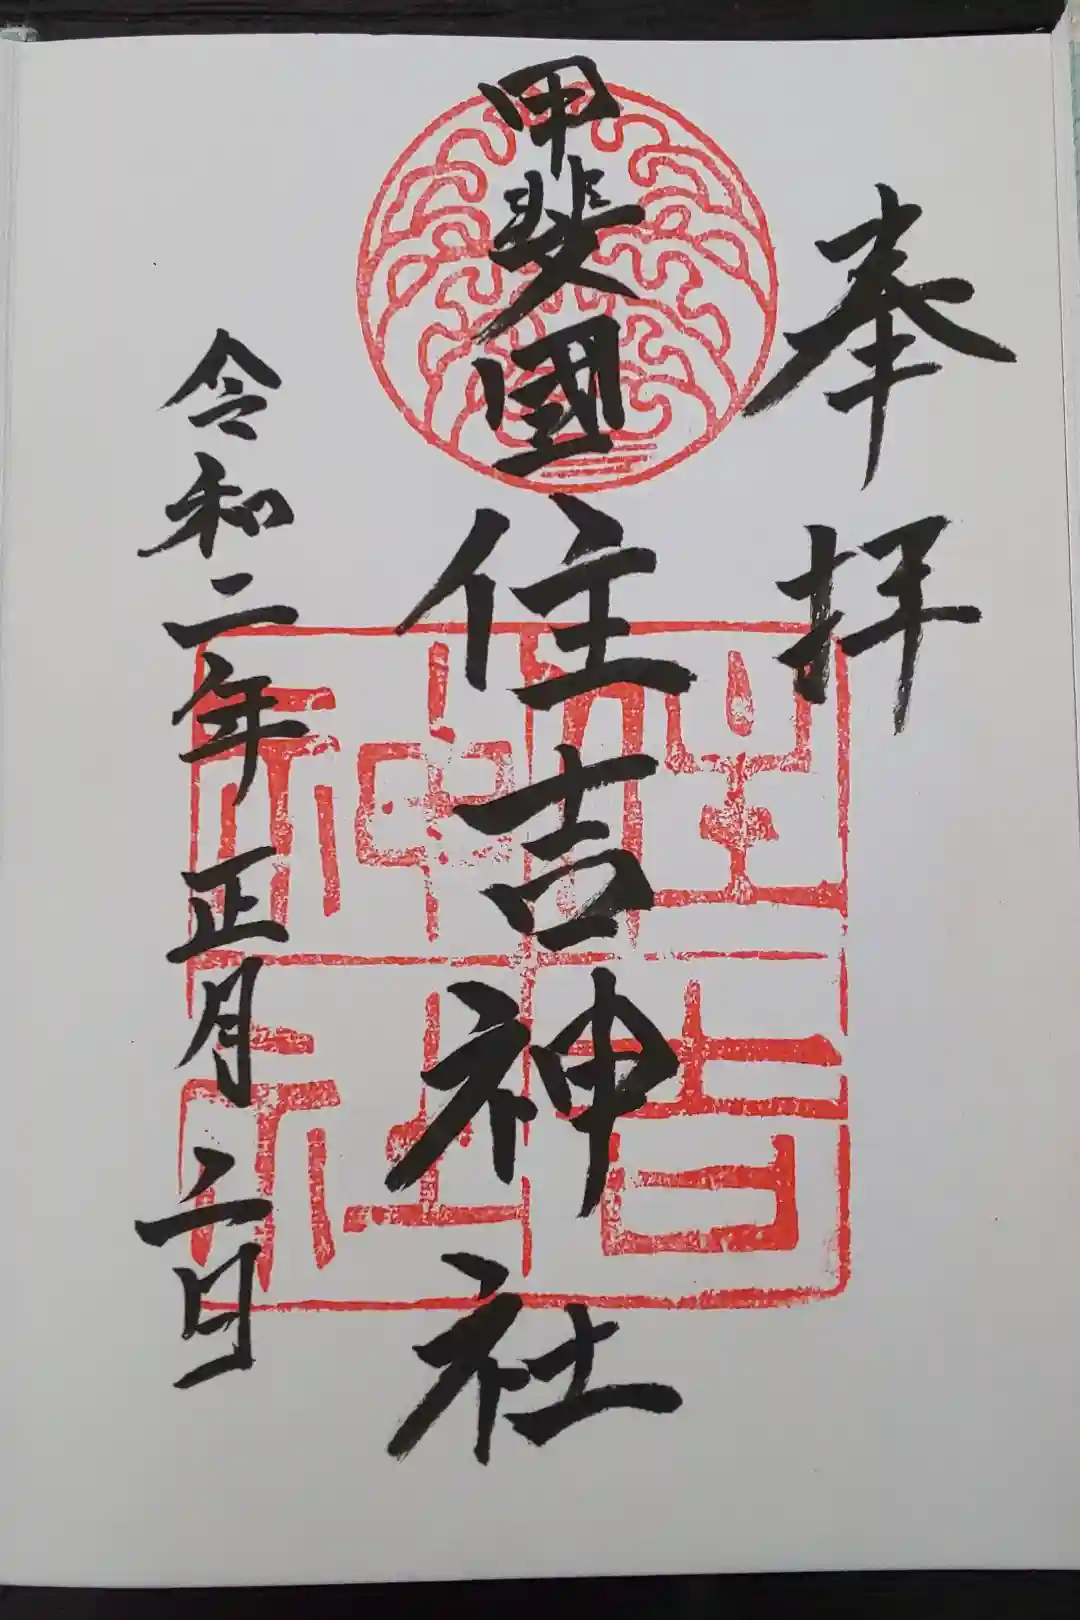 奉拝
甲斐國
住吉神社
令和二年正月二日
住吉神社